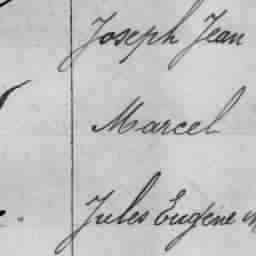 Joseph Jean
Marcel
Jules Eugène